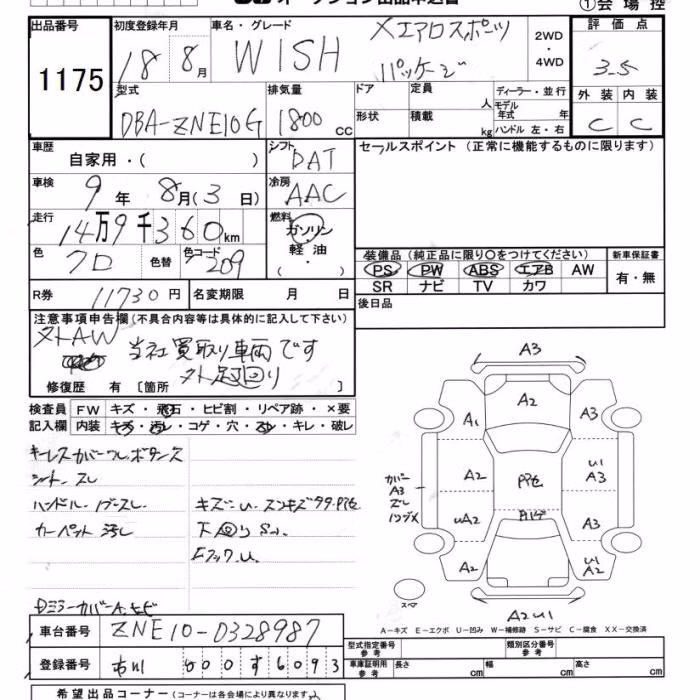 ①会場控
出品番号 初度登録年月 車名・グレード 評価点
1175 18 8月 WISH Xエアロスポーツ パッケージ 2WD・4WD 3.5
型式 排気量 ドア 定員 人 ディーラー・並行 外装 内装
DBA-ZNE10G 1800 cc 形状 積載 kg モデル年式 年 ハンドル 左・右 C C
車歴 自家用・( ) シフト DAT セールスポイント (正常に機能するものに限ります)
車検 9年 8月(3日) 冷房 AAC
走行 14万9千360km 燃料 ガソリン 軽油 ( )
色 クロ 色替 色コード 209
装備品 (純正品に限り○をつけてください) 新車保証書
PS PW ABS エアB AW 有・無
SR ナビ TV カワ
R券 11730円 名変期限 月 日 後日品
注意事項申告欄(不具合内容等は具体的に記入して下さい)
当社買取り車両です
修復歴 有 [箇所
検査員 FW キズ・飛石・ヒビ割・リペア跡・×要
記入欄 内装 キズ・汚レ・コゲ・穴・スレ・キレ・破レ
キーレスカバーワレ.ボタン欠
シート.スレ
ハンドル.ノブスレ.
カーペット 汚レ
下回りS.
A3
A2
A1 A3
A2 U1 A3
カバー A3 ズレ
UA2 A3
A2 U1 A2
スペア A2 U1
A-キズ E-エクボ U-凹み W-補修跡 S-サビ C-腐食 XX-交換済
車台番号 ZNE10-0328987
登録番号 市川 000す6093
型式指定番号 参考 類別区分番号 参考
車庫証明用 参考 長さ cm 幅 cm 高さ cm
希望出品コーナー(コーナーは各会場により異なります)